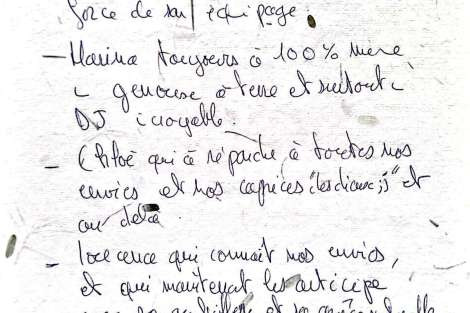 force de son équipage.
- Marina toujours à 100% même
genouse à terre et surtout
DJ incroyable.
- Chloé qui a répondu à toutes nos
envies et nos caprices "les dieux;)" et
au delà.
- Laurence qui connait nos envies,
et qui maintenant les anticipe
et sa